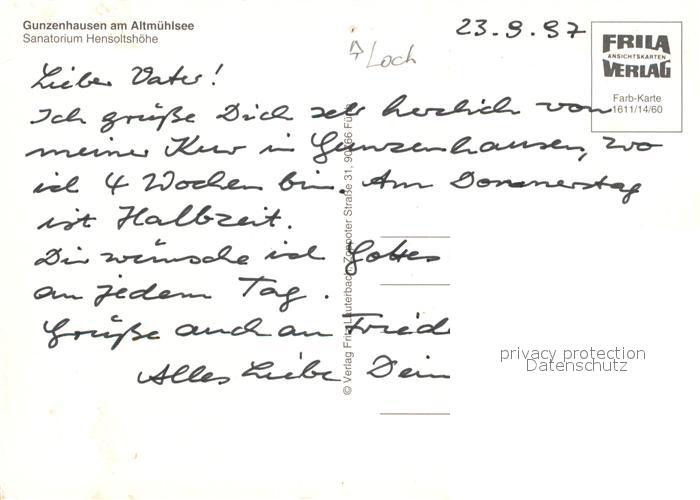 Gunzenhausen am Altmühlsee
Sanatorium Hensoltshöhe
23.9.97
Loch
FRILA
ANSICHTSKARTEN
VERLAG
Farb-Karte
1611/14/60
Lieber Vater!
Ich grüße Dich sehr herzlich von
meiner Kur in Gunzenhausen, wo
ich 4 Wochen bin. Am Donnerstag
ist Halbzeit.
Dir wünsche ich Gottes
an jedem Tag.
Grüße auch an Fried
Alles Liebe Dein
© Verlag Frila Lauterbach, Zoppoter Straße 31, 90766 Fürth
privacy protection
Datenschutz